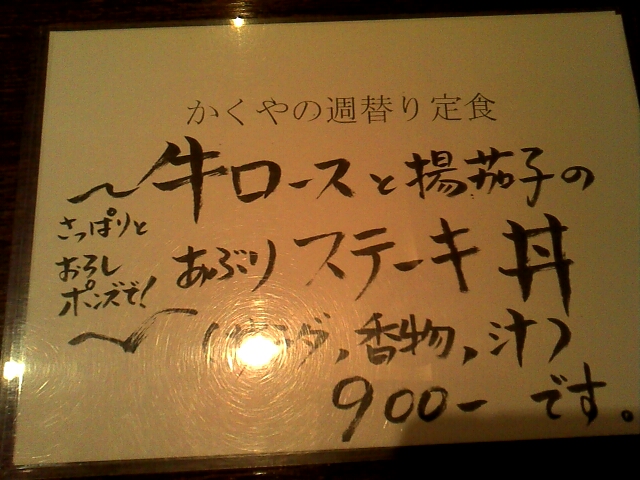 かくやの週替り定食
牛ロースと揚茄子の
あぶりステーキ丼
〜さっぱりと
おろし
ポンズで!〜
(サラダ、香物、汁)
900ー です。